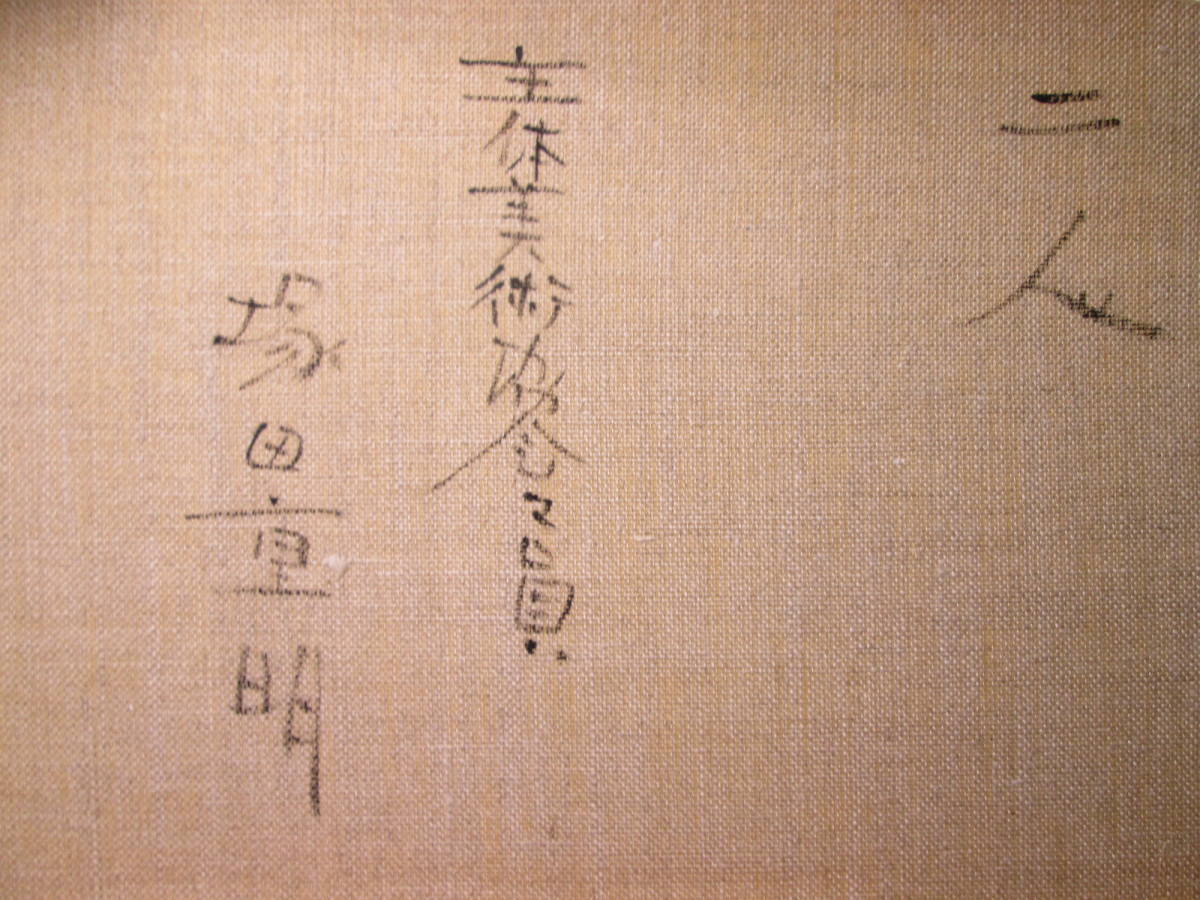 二人
主体美術協会々員
塚田重明